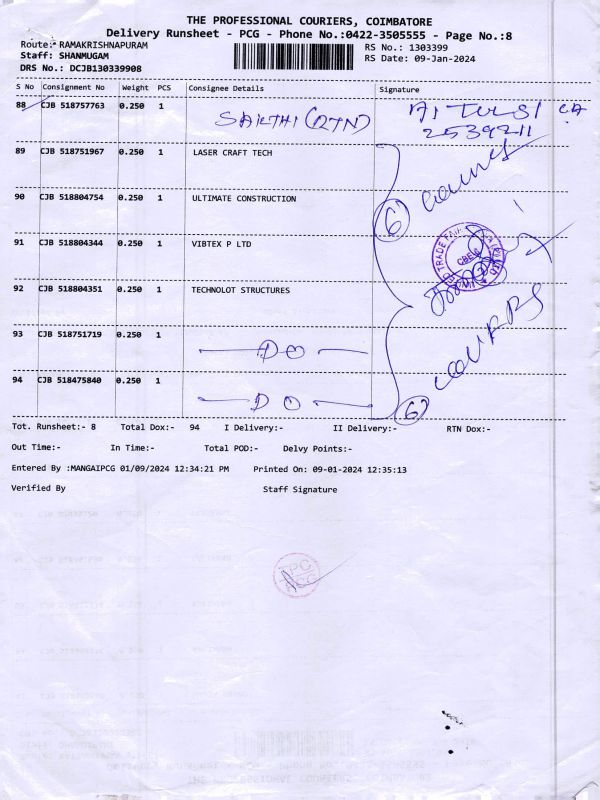 THE PROFESSIONAL COURIERS, COIMBATORE
Delivery Runsheet - PCG - Phone No.:0422-3505555 - Page No.:8
Route:- RAMAKRISHNAPURAM RS No.: 1303399
Staff: SHANMUGAM RS Date: 09-Jan-2024
DRS No.: DCJB130339908
S No Consignment No Weight PCS Consignee Details Signature
88 CJB 518757763 0.250 1 SAKTHI (RTN)
2539211
89 CJB 518751967 0.250 1 LASER CRAFT TECH
90 CJB 518804754 0.250 1 ULTIMATE CONSTRUCTION
6
91 CJB 518804344 0.250 1 VIBTEX P LTD
92 CJB 518804351 0.250 1 TECHNOLOT STRUCTURES
93 CJB 518751719 0.250 1 DO
94 CJB 518475840 0.250 1 DO
6
Tot. Runsheet:- 8 Total Dox:- 94 I Delivery:- II Delivery:- RTN Dox:-
Out Time:- In Time:- Total POD:- Delvy Points:-
Entered By :MANGAIPCG 01/09/2024 12:34:21 PM Printed On: 09-01-2024 12:35:13
Verified By Staff Signature